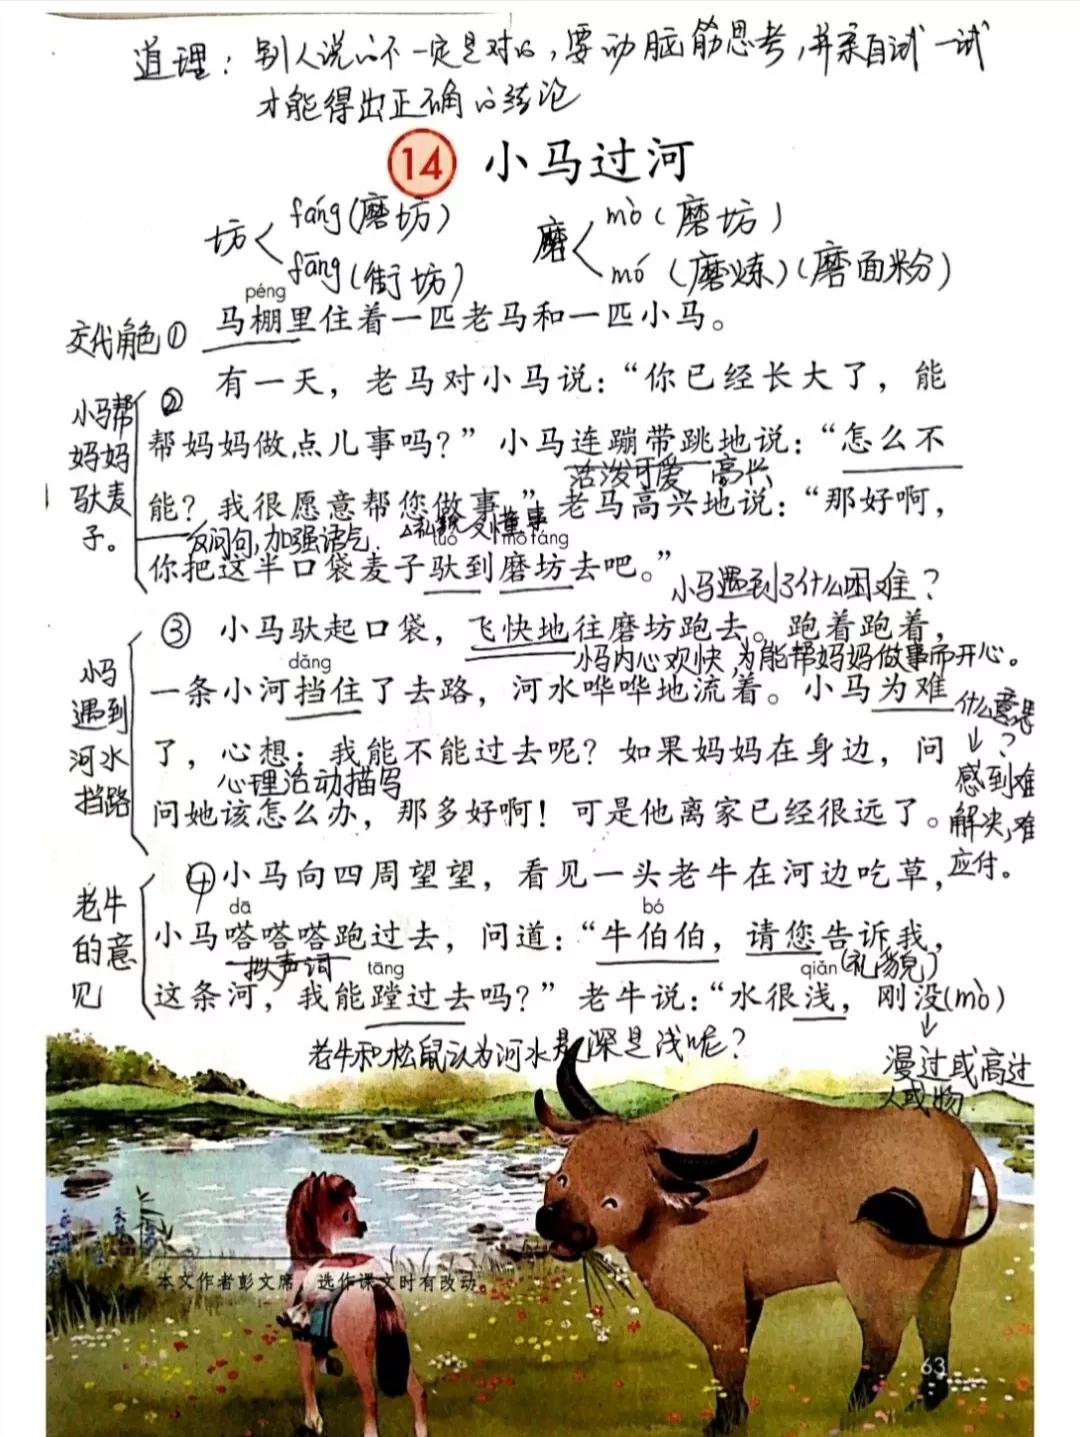 道理：别人说的不一定是对的，要动脑筋思考，并亲自试一试
才能得出正确的结论
14 小马过河
坊 fáng（磨坊）
fāng（街坊）
磨 mò（磨坊）
mó（磨炼）（磨面粉）
péng
交代角色① 马棚里住着一匹老马和一匹小马。
小马帮妈妈驮麦子。
② 有一天，老马对小马说：“你已经长大了，能
帮妈妈做点儿事吗？”小马连蹦带跳地说：“怎么不
活泼可爱 高兴
能？我很愿意帮您做事。”老马高兴地说：“那好啊，
反问句，加强语气。 礼貌又懂事
tuó mò fáng
你把这半口袋麦子驮到磨坊去吧。”
小马遇到了什么困难？
小马遇到河水挡路
③ 小马驮起口袋，飞快地往磨坊跑去。跑着跑着，
小马内心欢快，为能帮妈妈做事而开心。
dǎng
一条小河挡住了去路，河水哗哗地流着。小马为难
什么意思？
了，心想：我能不能过去呢？如果妈妈在身边，问
心理活动描写
感到难解决，难应付。
问她该怎么办，那多好啊！可是他离家已经很远了。
老牛的意见
④ 小马向四周望望，看见一头老牛在河边吃草，
dā bó
小马嗒嗒嗒跑过去，问道：“牛伯伯，请您告诉我，
拟声词 tāng qiǎn（礼貌）
这条河，我能蹚过去吗？”老牛说：“水很浅，刚没(mò)
老牛和松鼠认为河水是深是浅呢？
漫过或高过
人或物
本文作者彭文席，选作课文时有改动。
63